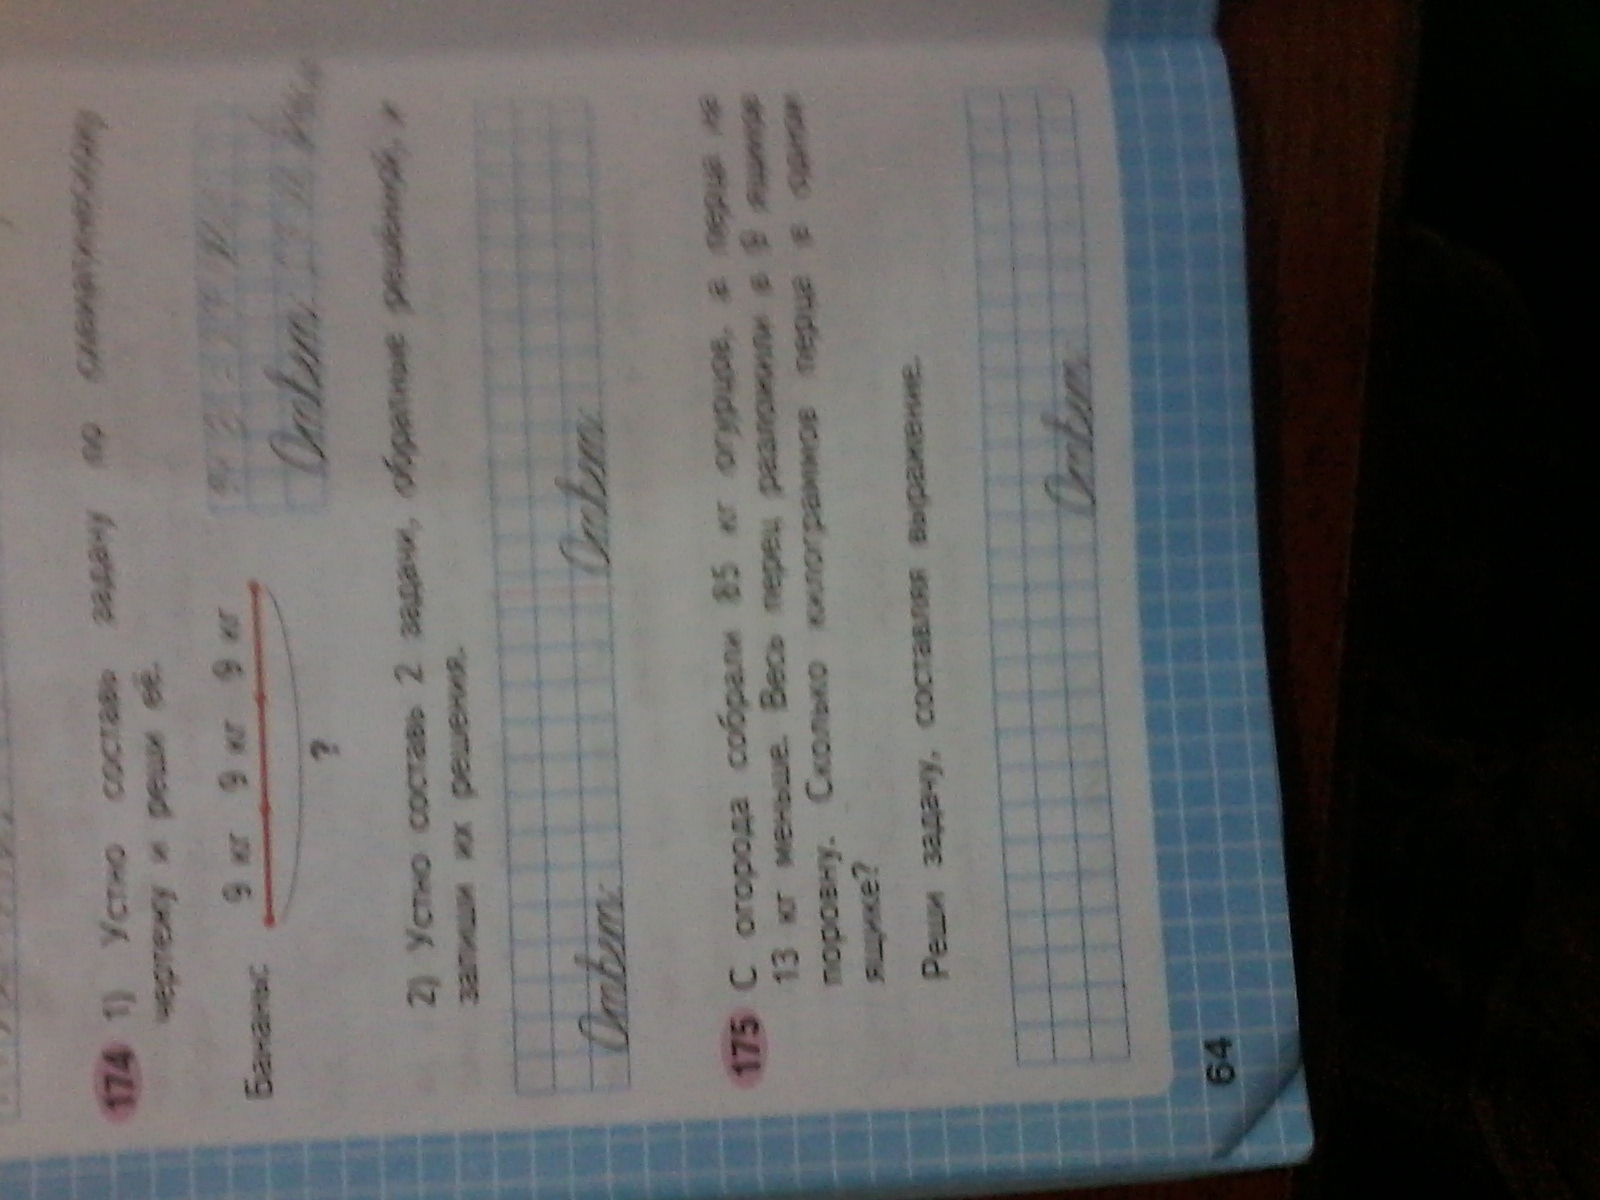 174 1) Устно составь задачу по схематическому
чертежу и реши её.
Бананы 9 кг 9 кг 9 кг
?
Ответ:
2) Устно составь 2 задачи, обратные решённой, и
запиши их решения.
Ответ: Ответ:
175 С огорода собрали 85 кг огурцов, а перца на
13 кг меньше. Весь перец разложили в 8 ящиков
поровну. Сколько килограммов перца в одном
ящике?
Реши задачу, составляя выражение.
Ответ:
64